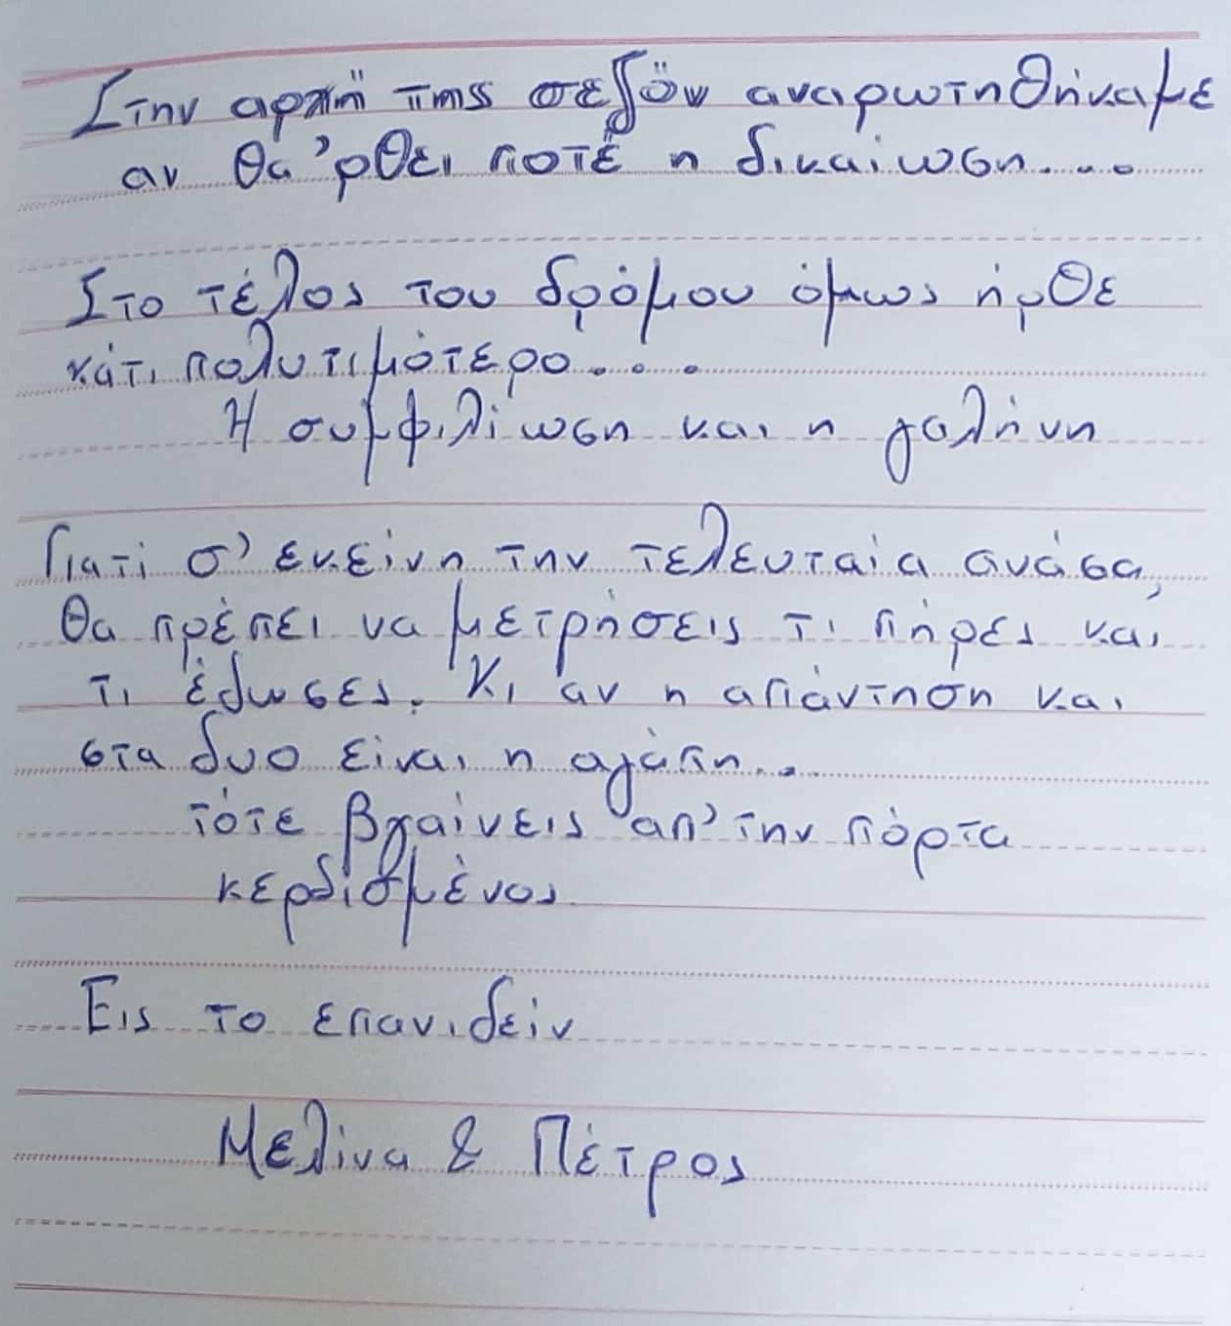 Στην αρχή της σεζόν αναρωτηθήκαμε
αν θα 'ρθει ποτέ η δικαίωση....
Στο τέλος του δρόμου όμως ήρθε
κάτι πολυτιμότερο....
Η συμφιλίωση και η γαλήνη
Γιατί σ' εκείνη την τελευταία ανάσα,
θα πρέπει να μετρήσεις τι πήρες και
τι έδωσες. Κι αν η απάντηση και
στα δυο είναι η αγάπη...
τότε βγαίνεις απ' την πόρτα
κερδισμένος.
Εις το επανιδείν
Μελίνα & Πέτρος